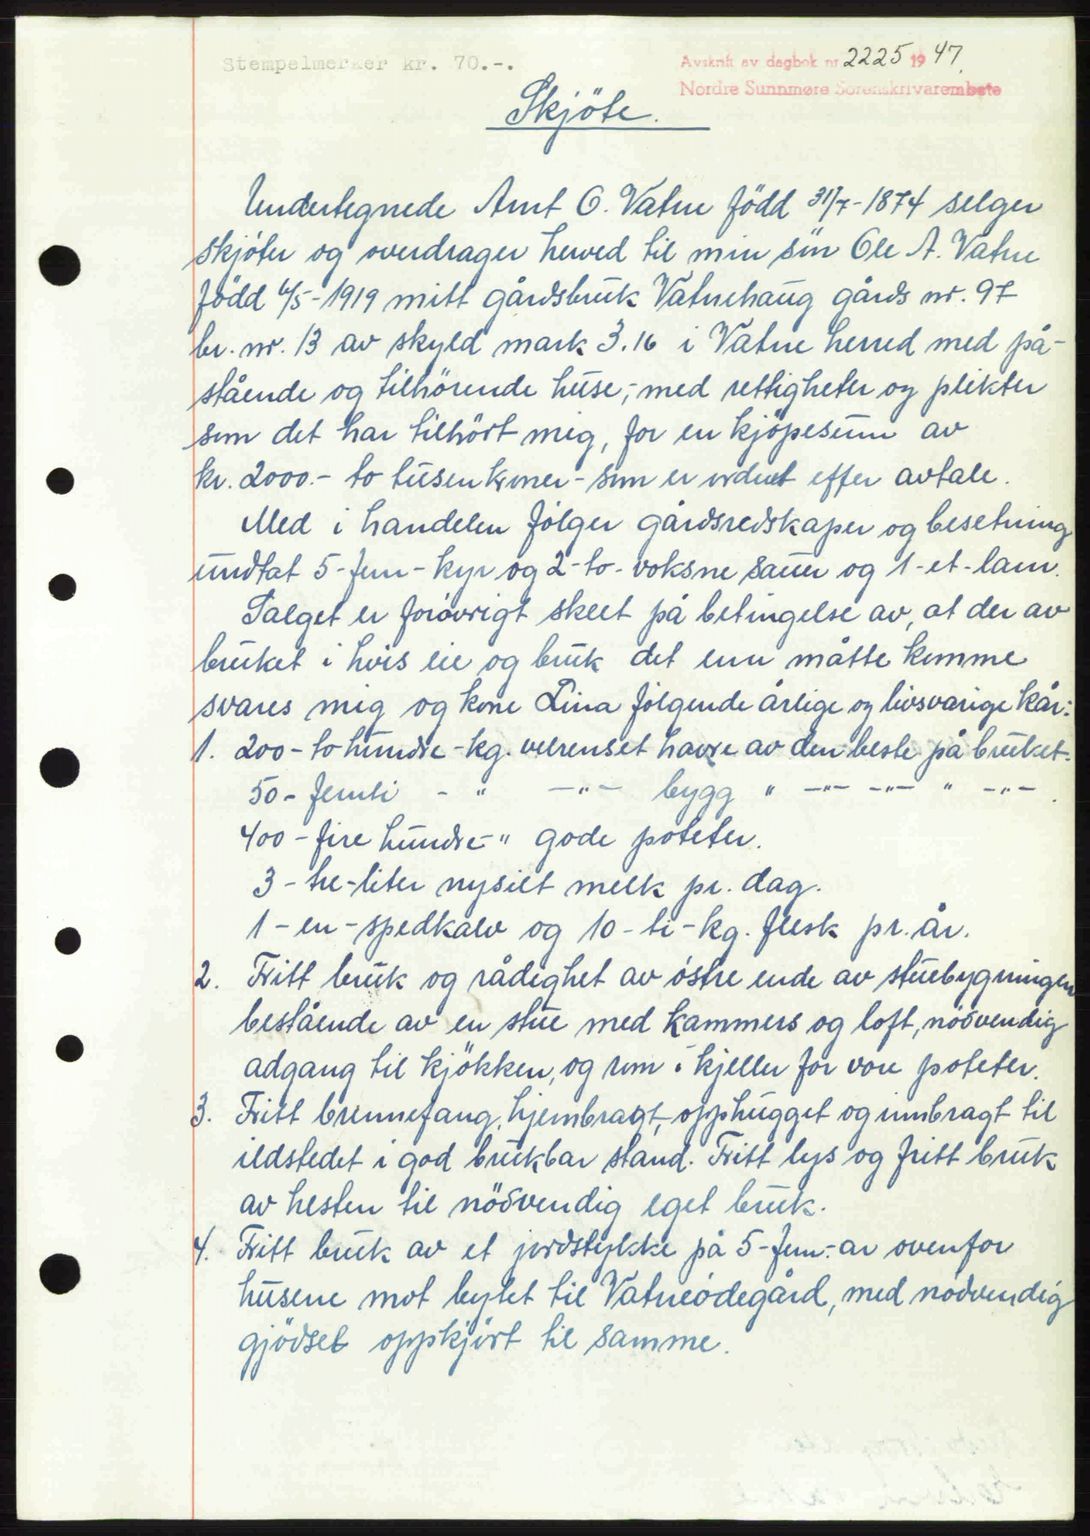 Stempelmerker kr. 70.-.
Avskrift av dagbok nr 2225 1947.
Nordre Sunnmøre Sorenskrivarembete
Skjöte.
Undertegnede Arnt O. Vatne född 31/7-1874 selger
skjöter og overdrager herved til min sön Ole A. Vatne
född 4/5-1919 mitt gårdsbruk Vatnehaug gårds nr. 97
br. nr. 13 av skyld mark 3.16 i Vatne herred med på-
stående og tilhörende huse,- med rettigheter og plikter
som det har tilhört mig, for en kjöpesum av
kr. 2000.- to tusen kroner - som er ordnet efter avtale.
Med i handelen fölger gårdsredskaper og besetning
undtat 5-fem- kyr og 2-to- voksne sauer og 1-et-lam.
Salget er forövrigt skeet på betingelse av, at der av
bruket i hvis eie og bruk det enn måtte komme
svares mig og kone Lina fölgende årlige og livsvarige kår:
1. 200-to hundre-kg. velrenset havre av den beste på bruket.
50- femti - " -"- bygg " -"- -"- " -"- .
400-fire hundre-" gode poteter.
3-tre-liter nysilt melk pr. dag.
1-en-spedkalv og 10-ti-kg. flesk pr. år.
2. Fritt bruk og rådighet av östre ende av stuebygningen
bestående av en stue med kammers og loft, nödvendig
adgang til kjökken, og rom i kjeller for våre poteter.
3. Fritt brennefang, hjembragt, opphugget og innbragt til
ildstedet i god brukbar stand. Fritt lys og fritt bruk
av hesten til nödvendig eget bruk.
4. Fritt bruk av et jordstykke på 5-fem-ar ovenfor
husene mot bytet til Vatneödegård, med nödvendig
gjödsel oppkjört til samme.